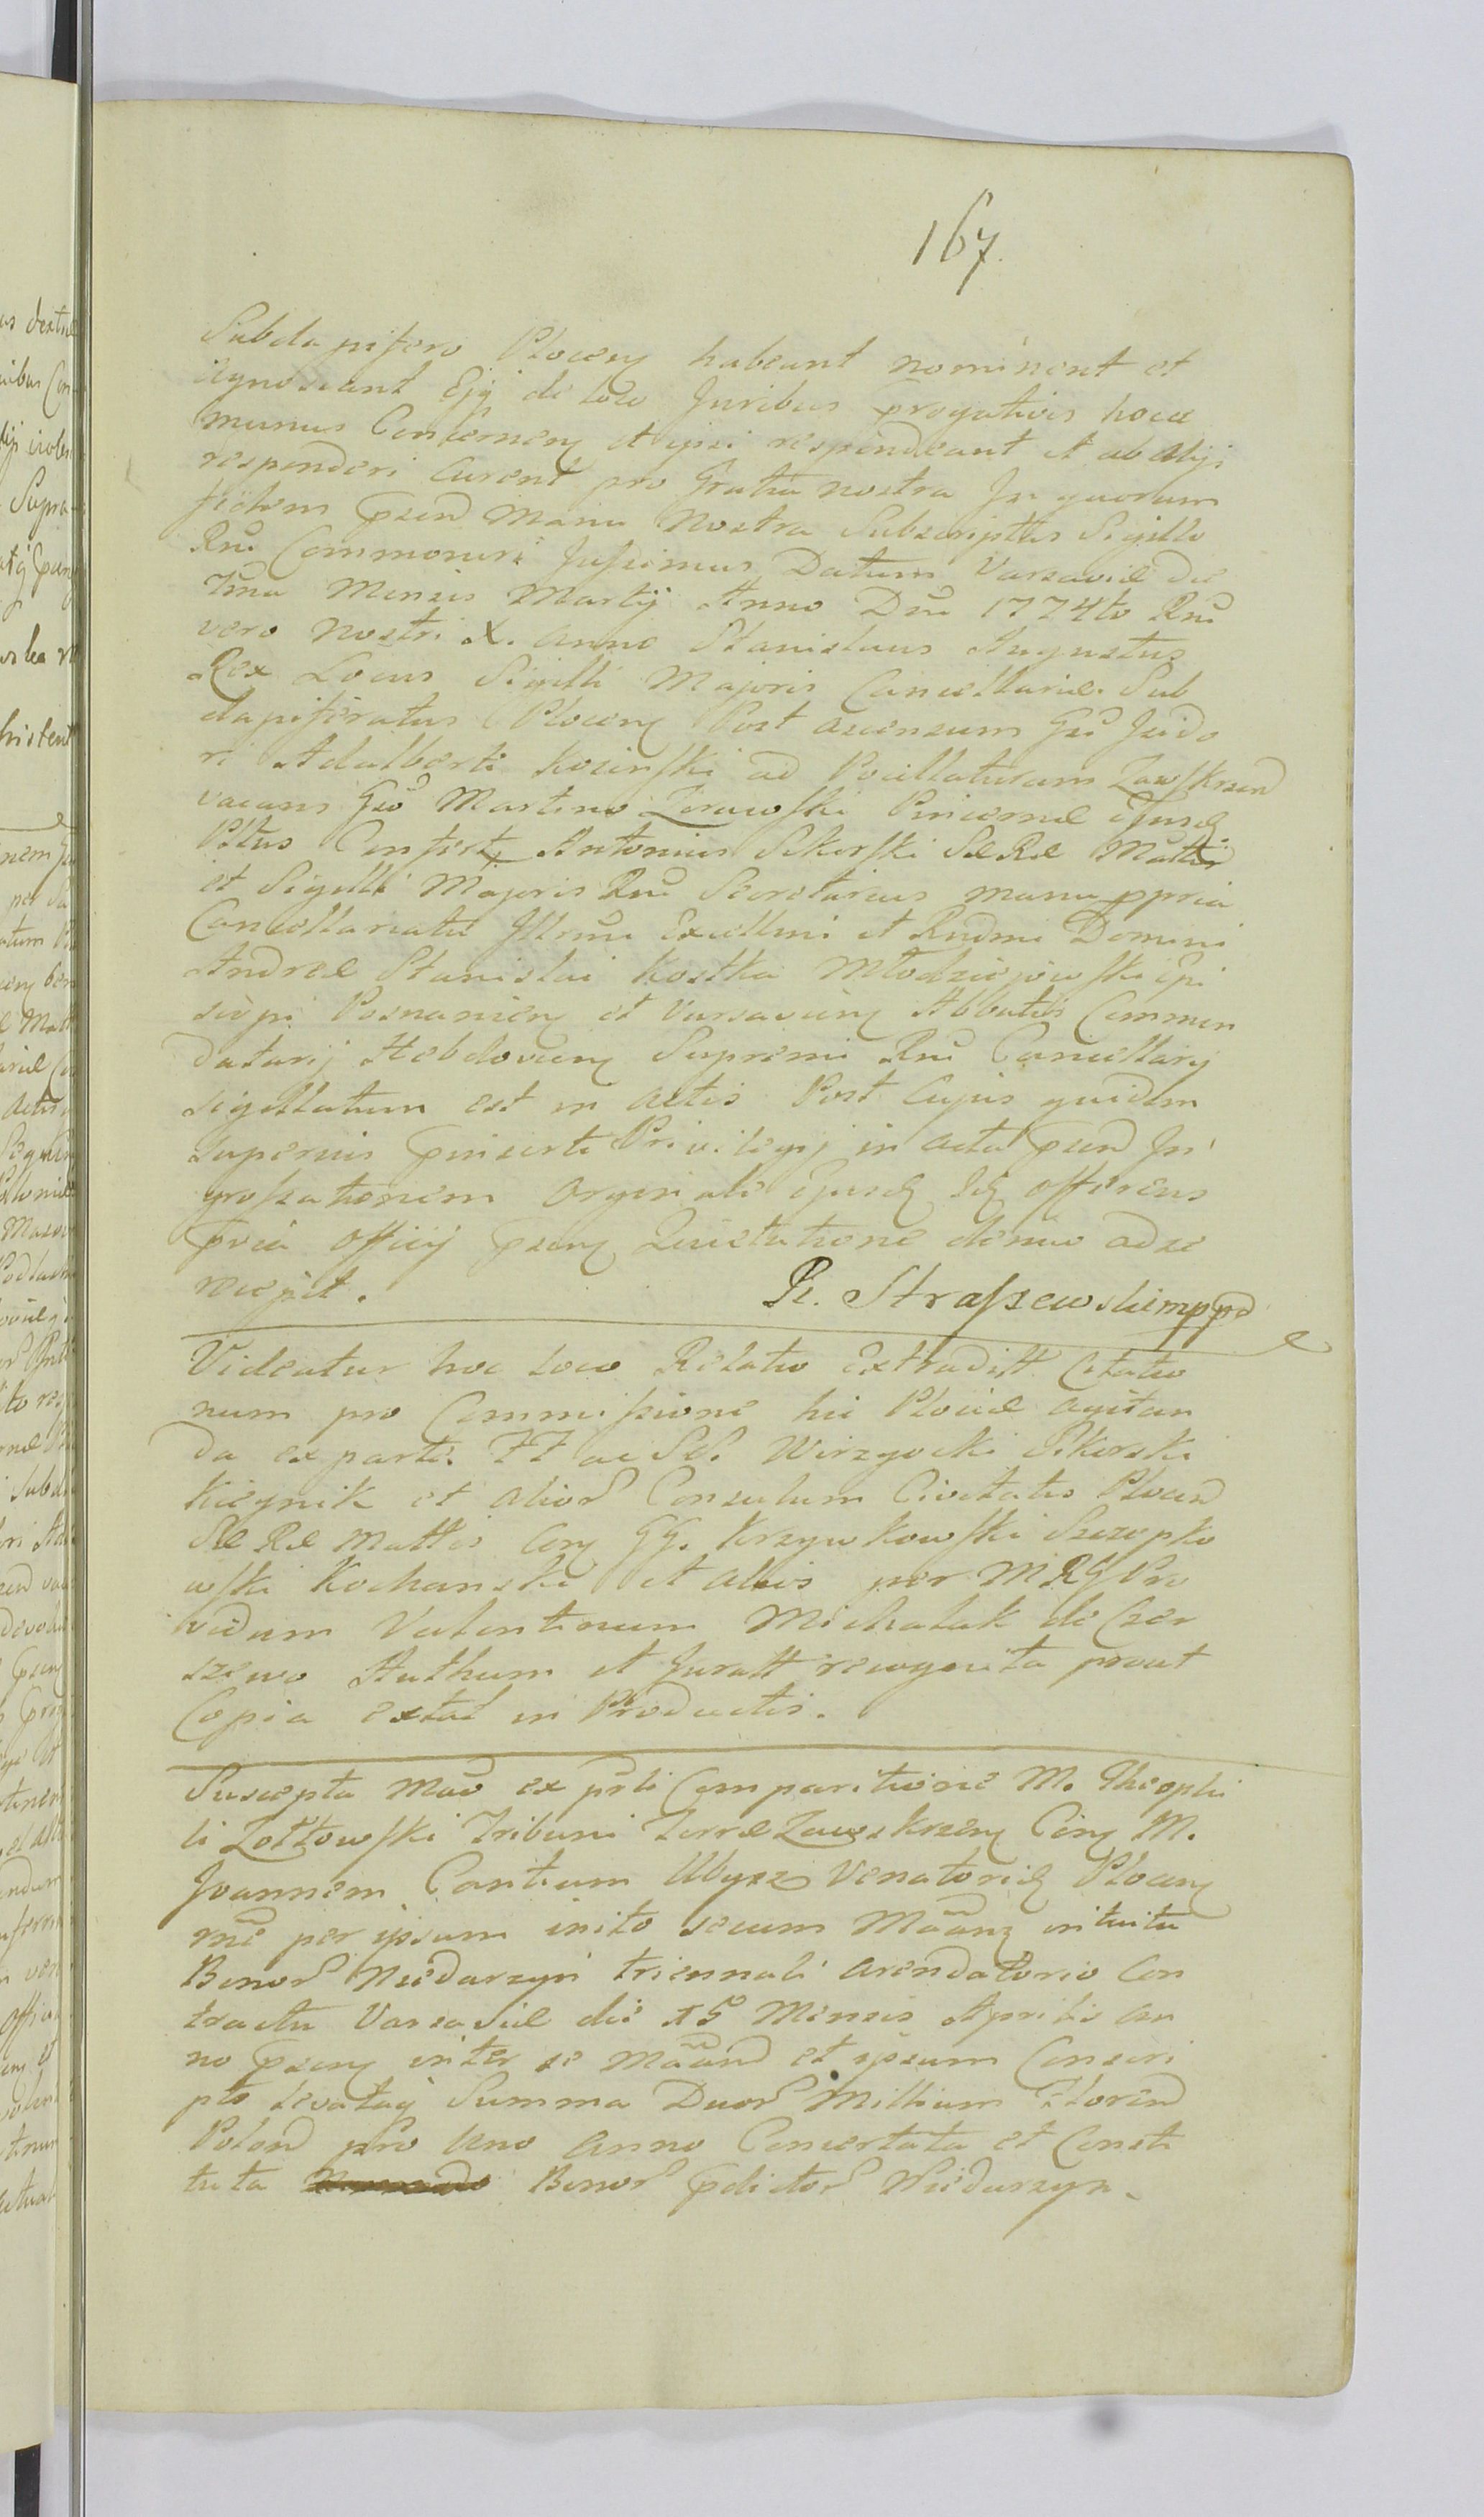 167.
Subdapifero Plocen habeant nominent et
agnoscant Ejq de toto Juribus Prrogativis hocce
munus Concernen et ipsi respondeant et ab alijs
responderi Curent pro Gratia nostra In quorum
fidem Psend Manu Nostra Subscriptis Sigillo
Rni Commoniri Jussimus Datum Varsaviæ Die
7ma Mensis Martij Anno Dni 1774to Rni
vero nostri X. anno Stanislaus Augustus
Rex Locus Sigilli Majoris Cancellariæ. Sub
dapiferatus Plocen Post ascensum Gsi Jsido
ri Adalberti Kosinski ad Pocillaturam Zawskrzen
vacans Gso Martino Zorawski Pincernæ ejusd
Pltus Confert Antonius Sikorski SæRæ Mattis
et Sigilli Majoris Rni Secretarius manu ppria
Cancellariatu Illrmi Excellmi et Rndmi Domini
Andreæ Stanislai Kostka Młodziejowski Epi
scopi Posnanien et Varsavien Abbatis Commen
datarij Hebdovien Supremi Rni Cancellarij
sigillatum est in actis Post Cujus quidem
superius Pinserti Privilegij in acta Psen In
grossationem Originale ejusd Id offerens
Pvia Officij Psen Quietatione denuo ad se
recepit.
R. Strassewski mppd
Videatur hoc loco Relatio Extradist Citatio
num pro Commissione hic Plociæ agitan
da ex parte FF ac Sp. Wirzgocki Sikorski
Kiegnik et alior Consulum Civitatis Plocen
SæRæ Mattis Con GG. Krzywkowski Szczepko
wski Kochanski et aliis per MRG Pro
vidum Valentinum Michalak de Czer
szewo Authum et Juratt recognita prout
Copia extat in Productis.
Suscepta Mao ex prti Comparitione M. Theophi
li Zołtowski Tribuni Terræ Zawskrzen Con M.
Joannem Cantium Ubysz Venatorid Plocen
rne per ipsum inito secum Maan intuitu
Bonor Niedarzyn triennali arendatorio Con
tractu Varsaviæ die 15 Mensis Aprilis an
no Psen inter se Maand et ipsum Conscri
pto levataq Summa Duor Millium Floren
Polon pro uno anno Concertata et Consti
tuta Bonor Pdictor Niedarzyn.